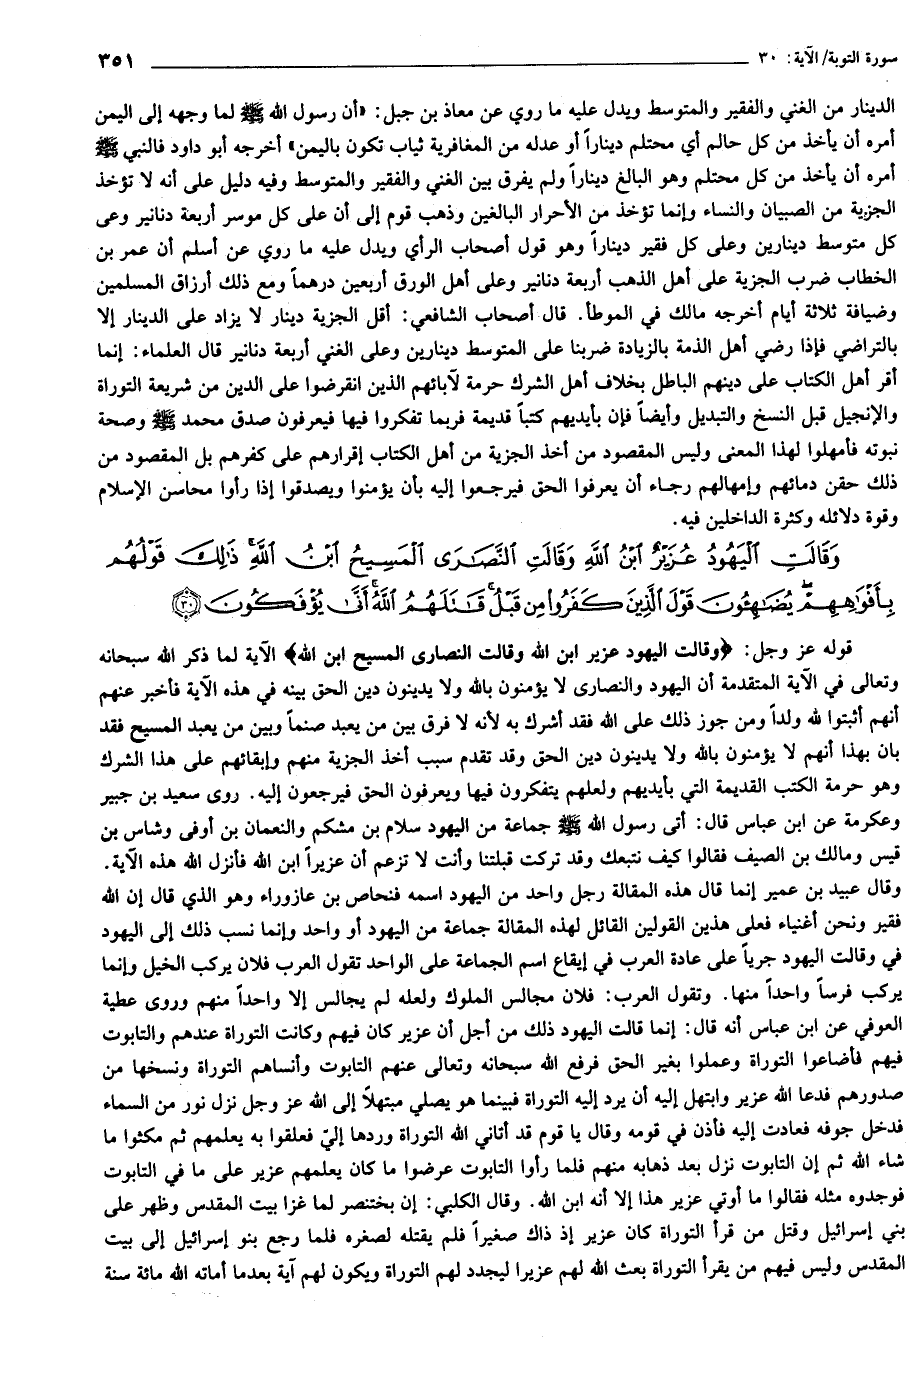 سورة التوبة/ الآية: ٣٠ ٣٥١
الدينار من الغني والفقير والمتوسط ويدل عليه ما روي عن معاذ بن جبل: «أن رسول الله ﷺ لما وجهه إلى اليمن
أمره أن يأخذ من كل حالم أي محتلم ديناراً أو عدله من المغافرية ثياب تكون باليمن» أخرجه أبو داود فالنبي ﷺ
أمره أن يأخذ من كل محتلم وهو البالغ ديناراً ولم يفرق بين الغني والفقير والمتوسط وفيه دليل على أنه لا تؤخذ
الجزية من الصبيان والنساء وإنما تؤخذ من الأحرار البالغين وذهب قوم إلى أن على كل موسر أربعة دنانير وعى
كل متوسط دينارين وعلى كل فقير ديناراً وهو قول أصحاب الرأي ويدل عليه ما روي عن أسلم أن عمر بن
الخطاب ضرب الجزية على أهل الذهب أربعة دنانير وعلى أهل الورق أربعين درهماً ومع ذلك أرزاق المسلمين
وضيافة ثلاثة أيام أخرجه مالك في الموطأ. قال أصحاب الشافعي: أقل الجزية دينار لا يزاد على الدينار إلا
بالتراضي فإذا رضي أهل الذمة بالزيادة ضربنا على المتوسط دينارين وعلى الغني أربعة دنانير قال العلماء: إنما
أقر أهل الكتاب على دينهم الباطل بخلاف أهل الشرك حرمة لآبائهم الذين انقرضوا على الدين من شريعة التوراة
والإنجيل قبل النسخ والتبديل وأيضاً فإن بأيديهم كتباً قديمة فربما تفكروا فيها فيعرفون صدق محمد ﷺ وصحة
نبوته فأمهلوا لهذا المعنى وليس المقصود من أخذ الجزية من أهل الكتاب إقرارهم على كفرهم بل المقصود من
ذلك حقن دمائهم وإمهالهم رجاء أن يعرفوا الحق فيرجعوا إليه بأن يؤمنوا ويصدقوا إذا رأوا محاسن الإسلام
وقوة دلائله وكثرة الداخلين فيه.
وَقَالَتِ ٱلْيَهُودُ عُزَيْرٌ ٱبْنُ ٱللَّهِ وَقَالَتِ ٱلنَّصَـٰرَى ٱلْمَسِيحُ ٱبْنُ ٱللَّهِ ۖ ذَٰلِكَ قَوْلُهُم
بِأَفْوَٰهِهِمْ ۖ يُضَـٰهِـُٔونَ قَوْلَ ٱلَّذِينَ كَفَرُوا۟ مِن قَبْلُ ۚ قَـٰتَلَهُمُ ٱللَّهُ ۚ أَنَّىٰ يُؤْفَكُونَ ۝٣٠
قوله عز وجل: ﴿وقالت اليهود عزير ابن الله وقالت النصارى المسيح ابن الله﴾ الآية لما ذكر الله سبحانه
وتعالى في الآية المتقدمة أن اليهود والنصارى لا يؤمنون بالله ولا يدينون دين الحق بينه في هذه الآية فأخبر عنهم
أنهم أثبتوا لله ولداً ومن جوز ذلك على الله فقد أشرك به لأنه لا فرق بين من يعبد صنماً وبين من يعبد المسيح فقد
بان بهذا أنهم لا يؤمنون بالله ولا يدينون دين الحق وقد تقدم سبب أخذ الجزية منهم وإبقائهم على هذا الشرك
وهو حرمة الكتب القديمة التي بأيديهم ولعلهم يتفكرون فيها ويعرفون الحق فيرجعون إليه. روى سعيد بن جبير
وعكرمة عن ابن عباس قال: أتى رسول الله ﷺ جماعة من اليهود سلام بن مشكم والنعمان بن أوفى وشاس بن
قيس ومالك بن الصيف فقالوا كيف نتبعك وقد تركت قبلتنا وأنت لا تزعم أن عزيراً ابن الله فأنزل الله هذه الآية.
وقال عبيد بن عمير إنما قال هذه المقالة رجل واحد من اليهود اسمه فنحاص بن عازوراء وهو الذي قال إن الله
فقير ونحن أغنياء فعلى هذين القولين القائل لهذه المقالة جماعة من اليهود أو واحد وإنما نسب ذلك إلى اليهود
في وقالت اليهود جرياً على عادة العرب في إيقاع اسم الجماعة على الواحد تقول العرب فلان يركب الخيل وإنما
يركب فرساً واحداً منها. وتقول العرب: فلان مجالس الملوك ولعله لم يجالس إلا واحداً منهم وروى عطية
العوفي عن ابن عباس أنه قال: إنما قالت اليهود ذلك من أجل أن عزير كان فيهم وكانت التوراة عندهم والتابوت
فيهم فأضاعوا التوراة وعملوا بغير الحق فرفع الله سبحانه وتعالى عنهم التابوت وأنساهم التوراة ونسخها من
صدورهم فدعا الله عزير وابتهل إليه أن يرد إليه التوراة فبينما هو يصلي مبتهلاً إلى الله عز وجل نزل نور من السماء
فدخل جوفه فعادت إليه فأذن في قومه وقال يا قوم قد أتاني الله التوراة وردها إليّ فعلقوا به يعلمهم ثم مكثوا ما
شاء الله ثم إن التابوت نزل بعد ذهابه منهم فلما رأوا التابوت عرضوا ما كان يعلمهم عزير على ما في التابوت
فوجدوه مثله فقالوا ما أوتي عزير هذا إلا أنه ابن الله. وقال الكلبي: إن بختنصر لما غزا بيت المقدس وظهر على
بني إسرائيل وقتل من قرأ التوراة كان عزير إذ ذاك صغيراً فلم يقتله لصغره فلما رجع بنو إسرائيل إلى بيت
المقدس وليس فيهم من يقرأ التوراة بعث الله لهم عزيرا ليجدد لهم التوراة ويكون لهم آية بعدما أماته الله مائة سنة